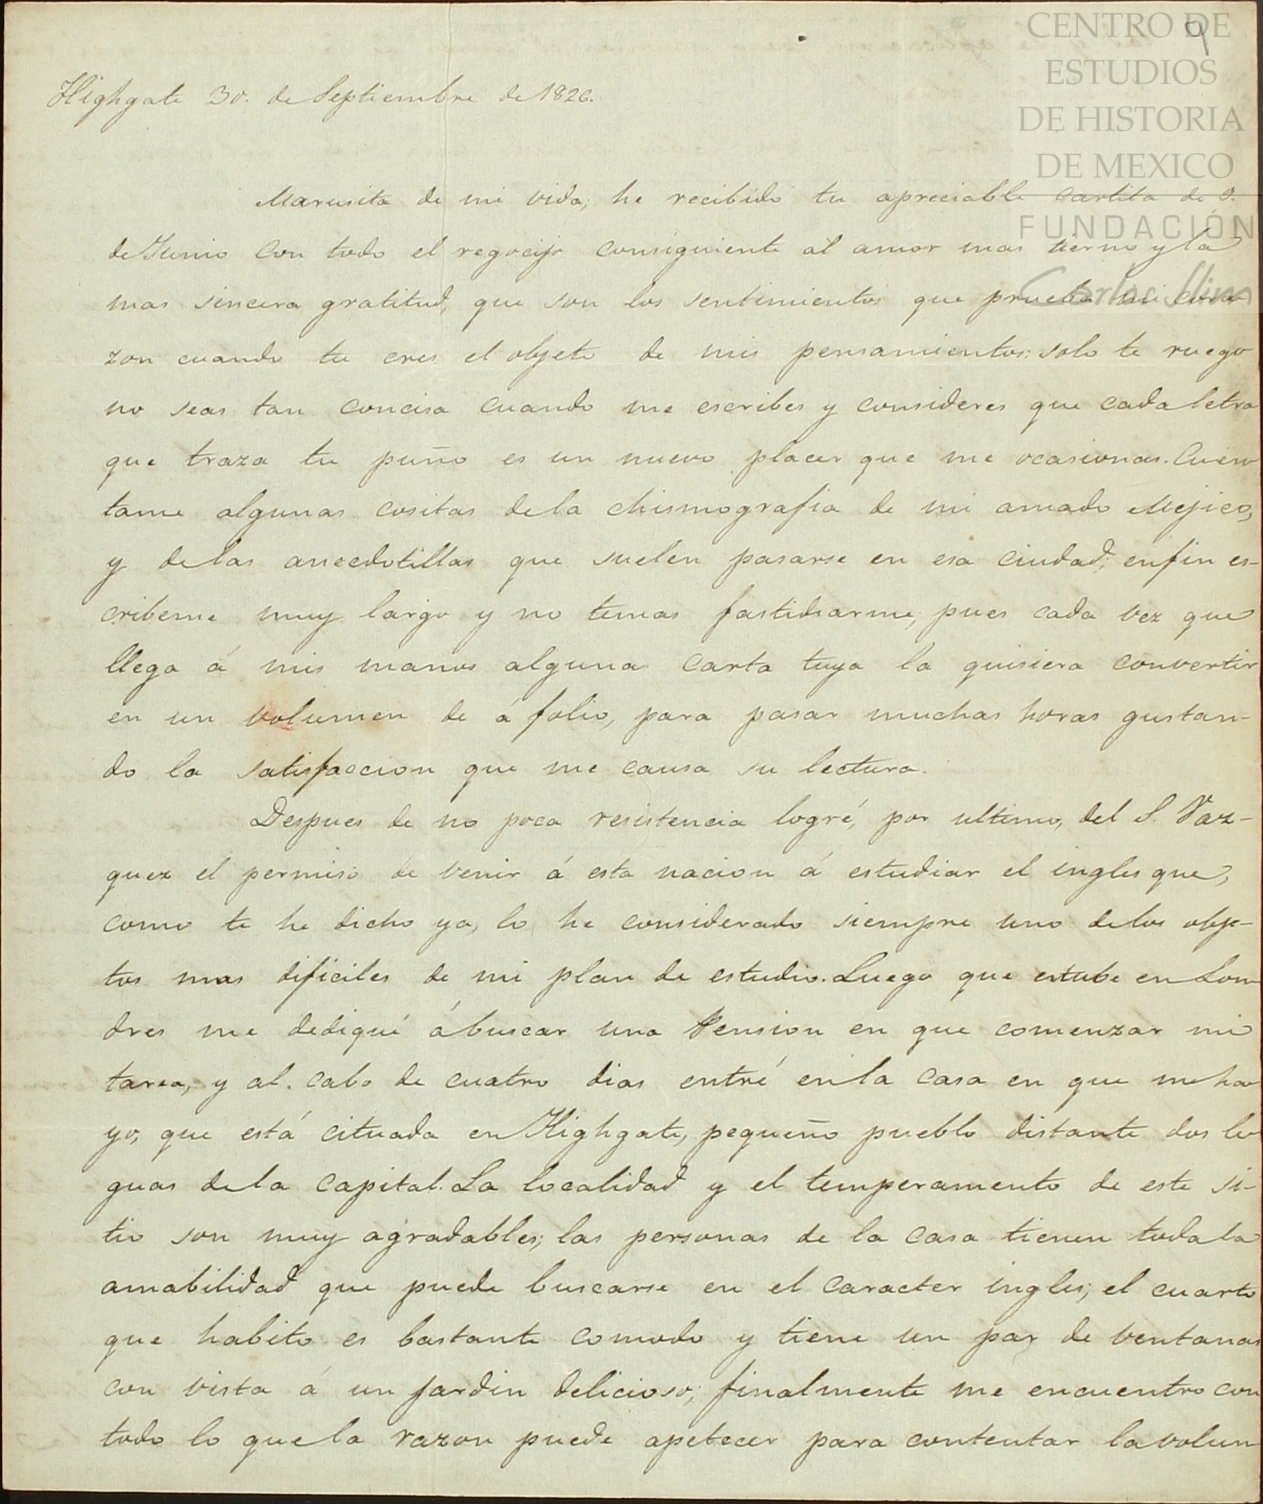 CENTRO DE
ESTUDIOS
DE HISTORIA
DE MEXICO
FUNDACIÓN
Carlos Slim
9
Highgate 30. de Septiembre de 1826.
Marusita de mi vida; he recibido tu apreciable cartita de 9.
de Junio con todo el regocijo consiguiente al amor mas tierno y la
mas sincera gratitud, que son los sentimientos que prueba mi cora-
zon cuando tu eres el objeto de mis pensamientos: solo te ruego
no seas tan concisa cuando me escribes y consideres que cada letra
que traza tu puño es un nuevo placer que me ocasionas. Cuen
tame algunas cositas de la chismografia de mi amado Mejico,
y de las anecdotillas que suelen pasarse en esa ciudad; en fin es-
cribeme muy largo y no temas fastidiarme, pues cada vez que
llega á mis manos alguna carta tuya la quisiera convertir
en un volumen de á folio, para pasar muchas horas gustan-
do la satisfaccion que me causa su lectura.
Despues de no poca resistencia logré, por ultimo, del S. Vaz-
quez el permiso de venir á esta nacion á estudiar el ingles que,
como te he dicho ya, lo he considerado siempre uno de los obje-
tos mas dificiles de mi plan de estudio. Luego que estube en Lon
dres me dediqué á buscar una Pension en que comenzar mi
tarea, y al cabo de cuatro dias entré en la casa en que me ha
yo, que está cituada en Highgate, pequeño pueblo distante dos le
guas de la capital. La localidad y el temperamento de este si-
tio son muy agradables; las personas de la casa tienen toda la
amabilidad que puede buscarse en el caracter ingles; el cuarto
que habito es bastante comodo y tiene un par de ventanas
con vista á un jardin delicioso; finalmente me encuentro con
todo lo que la razon puede apetecer para contentar la volun